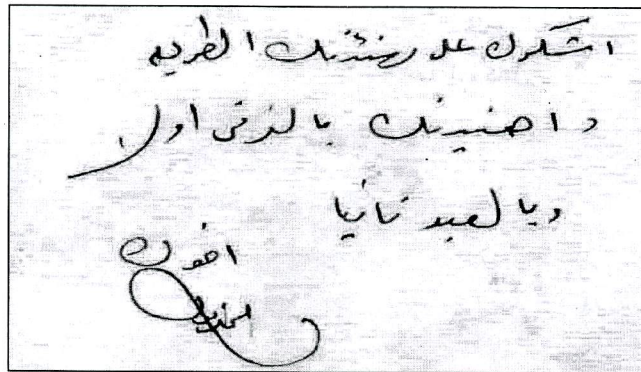 اشكرك على تهنئتك الطريفه
واهنيك بالترقى اولا
وبالعيد ثانيا
اخوك